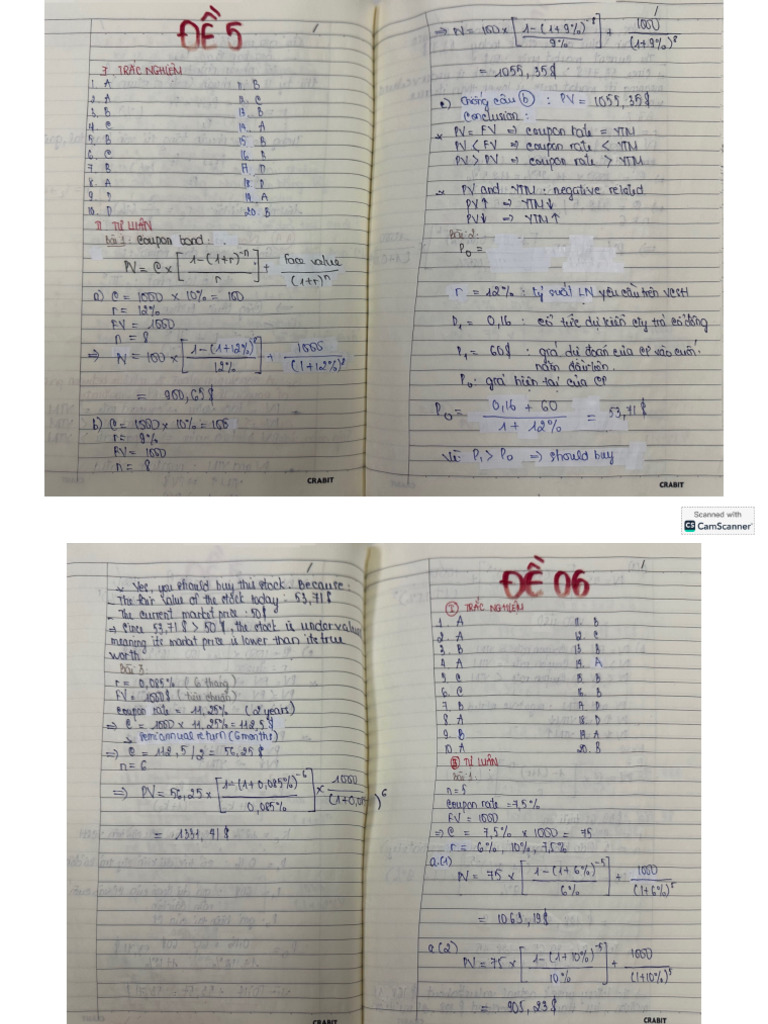 ĐỀ 5
I TRẮC NGHIỆM
1. A 11. B
2. A 12. C
3. B 13. B
4. C 14. A
5. B 15 B
6. C 16 B
7. B 17 D
8. A 18 D
9. D 19. A
10. D 20. B
II TỰ LUẬN
Bài 1: Coupon bond:
PV = C × [1-(1+r)^-n / r] + Face value / (1+r)^n
a) C = 1000 × 10% = 100
r = 12%
FV = 1000
n = 8
⇒ PV = 100 × [1-(1+12%)^-8 / 12%] + 1000 / (1+12%)^8
= 900,65$
b) C = 1000 × 10% = 100
r = 9%
FV = 1000
n = 8
CRABIT
⇒ PV = 100 × [1-(1+9%)^-8 / 9%] + 1000 / (1+9%)^8
= 1055,35$
c) Trong câu (b) : PV = 1055,35$
Conclusion:
* PV = FV ⇒ coupon rate = YTM
PV < FV ⇒ coupon rate < YTM
PV > FV ⇒ coupon rate > YTM
* PV and YTM: negative related
PV↑ ⇒ YTM↓
PV↓ ⇒ YTM↑
Bài 2:
P0 =
r = 12% : tỷ suất LN yêu cầu trên VCSH
D1 = 0,16 : cổ tức dự kiến cty trả cổ đông
P1 = 60$ : giá dự đoán của CP vào cuối
năm đầu tiên.
P0: giá hiện tại của CP
P0 = 0,16 + 60 / 1 + 12% = 53,71$
Vì P1 > P0 ⇒ should buy
CRABIT
Scanned with
CS CamScanner
Yes, you should buy this stock. Because:
- The fair value of the stock today: 53,71$
- The current market price: 50$
⇒ Since 53,71$ > 50$, the stock is undervalue
meaning its market price is lower than its true
worth.
Bài 3:
r = 0,085% (6 tháng)
FV = 1000$ (tiêu chuẩn)
Coupon rate = 11,25% (2 years)
⇒ C = 1000 × 11,25% = 112,5$
↳ Semiannual return (6 months)
⇒ C = 112,5/2 = 56,25$
n = 6
⇒ PV = 56,25 × [1-(1+0,085%)^-6 / 0,085%] × 1000 / (1+0,0 )^6
= 1331,91$
CRABIT
ĐỀ 06
I TRẮC NGHIỆM
1. A 11. B
2. A 12 C
3. B 13 B
4. A 14. A
5. C 15 B
6. C 16 B
7. B 17 D
8 A 18 D
9. B 19 A
10. A 20. B
II TỰ LUẬN
Bài 1:
n = 5
Coupon rate = 7,5%
FV = 1000
⇒ C = 7,5% × 1000 = 75
r = 6%, 10%, 7,5%
a.(1)
PV = 75 × [1-(1+6%)^-5 / 6%] + 1000 / (1+6%)^5
= 1063,19$
a(2)
PV = 75 × [1-(1+10%)^-5 / 10%] + 1000 / (1+10%)^5
= 905,23$
CRABIT